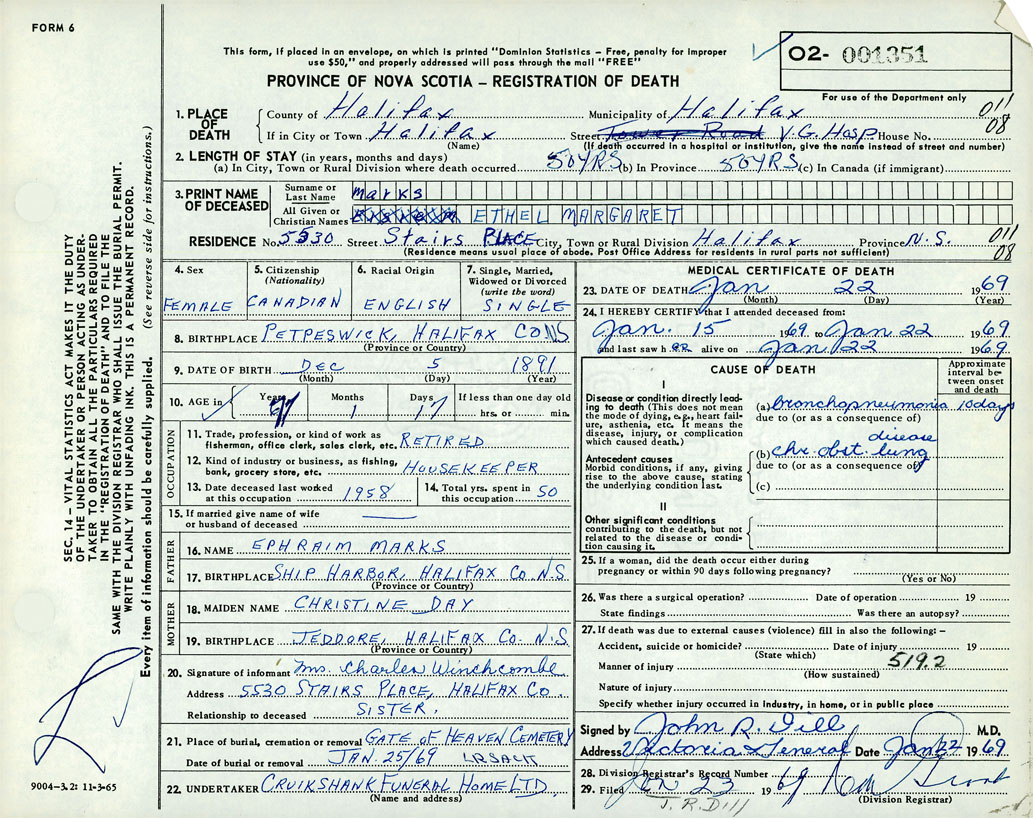 FORM 6
This form, if placed in an envelope, on which is printed "Dominion Statistics – Free, penalty for improper
use $50," and properly addressed will pass through the mail "FREE"
O2- 001351
PROVINCE OF NOVA SCOTIA – REGISTRATION OF DEATH
For use of the Department only
1. PLACE OF DEATH
County of Halifax Municipality of Halifax 011
If in City or Town Halifax Street Tower Road V.G. Hosp House No. 08
(Name) (If death occurred in a hospital or institution, give the name instead of street and number)
2. LENGTH OF STAY (in years, months and days)
(a) In City, Town or Rural Division where death occurred 50YRS (b) In Province 50YRS (c) In Canada (if immigrant)
3. PRINT NAME OF DECEASED
Surname or Last Name Marks
All Given or Christian Names ETHEL MARGARET
RESIDENCE No. 5530 Street Stairs PLACE City, Town or Rural Division Halifax Province N.S. 011
(Residence means usual place of abode. Post Office Address for residents in rural parts not sufficient) 08
4. Sex
FEMALE
5. Citizenship
(Nationality)
CANADIAN
6. Racial Origin
ENGLISH
7. Single, Married,
Widowed or Divorced
(write the word)
SINGLE
8. BIRTHPLACE PETPESWICK, HALIFAX CO NS
(Province or Country)
9. DATE OF BIRTH DEC 5 1891
(Month) (Day) (Year)
10. AGE in Years 77 Months 1 Days 17 If less than one day old
hrs. or min.
OCCUPATION
11. Trade, profession, or kind of work as
fisherman, office clerk, sales clerk, etc. RETIRED
12. Kind of industry or business, as fishing,
bank, grocery store, etc. HOUSEKEEPER
13. Date deceased last worked
at this occupation 1958
14. Total yrs. spent in
this occupation 50
15. If married give name of wife
or husband of deceased —
FATHER
16. NAME EPHRAIM MARKS
17. BIRTHPLACE SHIP HARBOR, HALIFAX CO. N.S
(Province or Country)
MOTHER
18. MAIDEN NAME CHRISTINE DAY
19. BIRTHPLACE JEDDORE, HALIFAX CO. N.S
(Province or Country)
20. Signature of informant Mrs. Charles Winchcombe
Address 5530 STAIRS PLACE, HALIFAX CO.
Relationship to deceased SISTER.
21. Place of burial, cremation or removal GATE OF HEAVEN CEMETERY
Date of burial or removal JAN. 25/69 LR SACK
22. UNDERTAKER CRUIKSHANK FUNERAL HOME LTD
(Name and address)
MEDICAL CERTIFICATE OF DEATH
23. DATE OF DEATH Jan 22 1969
(Month) (Day) (Year)
24. I HEREBY CERTIFY that I attended deceased from:
Jan. 15 1969 to Jan. 22 1969
and last saw h er alive on Jan 22 1969
CAUSE OF DEATH
Approximate
interval be-
tween onset
and death
I
Disease or condition directly lead-
ing to death (This does not mean
the mode of dying, e.g., heart fail-
ure, asthenia, etc. It means the
disease, injury, or complication
which caused death.)
(a) bronchopneumonia 10 days
due to (or as a consequence of)
Antecedent causes
Morbid conditions, if any, giving
rise to the above cause, stating
the underlying condition last.
(b) chr. obst. lung disease
due to (or as a consequence of)
(c)
II
Other significant conditions
contributing to the death, but not
related to the disease or condi-
tion causing it.
25. If a woman, did the death occur either during
pregnancy or within 90 days following pregnancy?
(Yes or No)
26. Was there a surgical operation? Date of operation 19
State findings Was there an autopsy?
27. If death was due to external causes (violence) fill in also the following: –
Accident, suicide or homicide? Date of injury 19
(State which) 519.2
Manner of injury
(How sustained)
Nature of injury
Specify whether injury occurred in industry, in home, or in public place
Signed by John R. Dill M.D.
Address Victoria General Date Jan 22 1969
28. Division Registrar's Record Number
29. Filed JAN 23 1969
(Division Registrar)
J. R. Dill
SEC. 14 – VITAL STATISTICS ACT MAKES IT THE DUTY
OF THE UNDERTAKER OR PERSON ACTING AS UNDER-
TAKER TO OBTAIN ALL THE PARTICULARS REQUIRED
IN THE "REGISTRATION OF DEATH" AND TO FILE THE
SAME WITH THE DIVISION REGISTRAR WHO SHALL ISSUE THE BURIAL PERMIT.
WRITE PLAINLY WITH UNFADING INK. THIS IS A PERMANENT RECORD.
Every item of information should be carefully supplied. (See reverse side for instructions.)
9004-3.2: 11-3-65